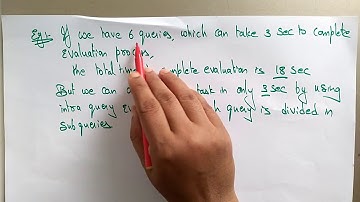 Eg:- If we have 6 queries, which can take 3 sec to complete
Evaluation process,
the total time complete evaluation is 18 sec
But we can task in only 3 sec by using
intra query query is divided in
Subqueries